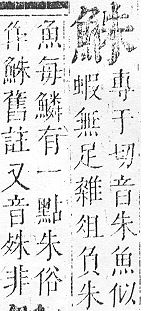 鮢 專于切音朱魚似
蝦無足雜俎負朱
魚每鱗有一點朱俗
作鮢舊註又音姝非